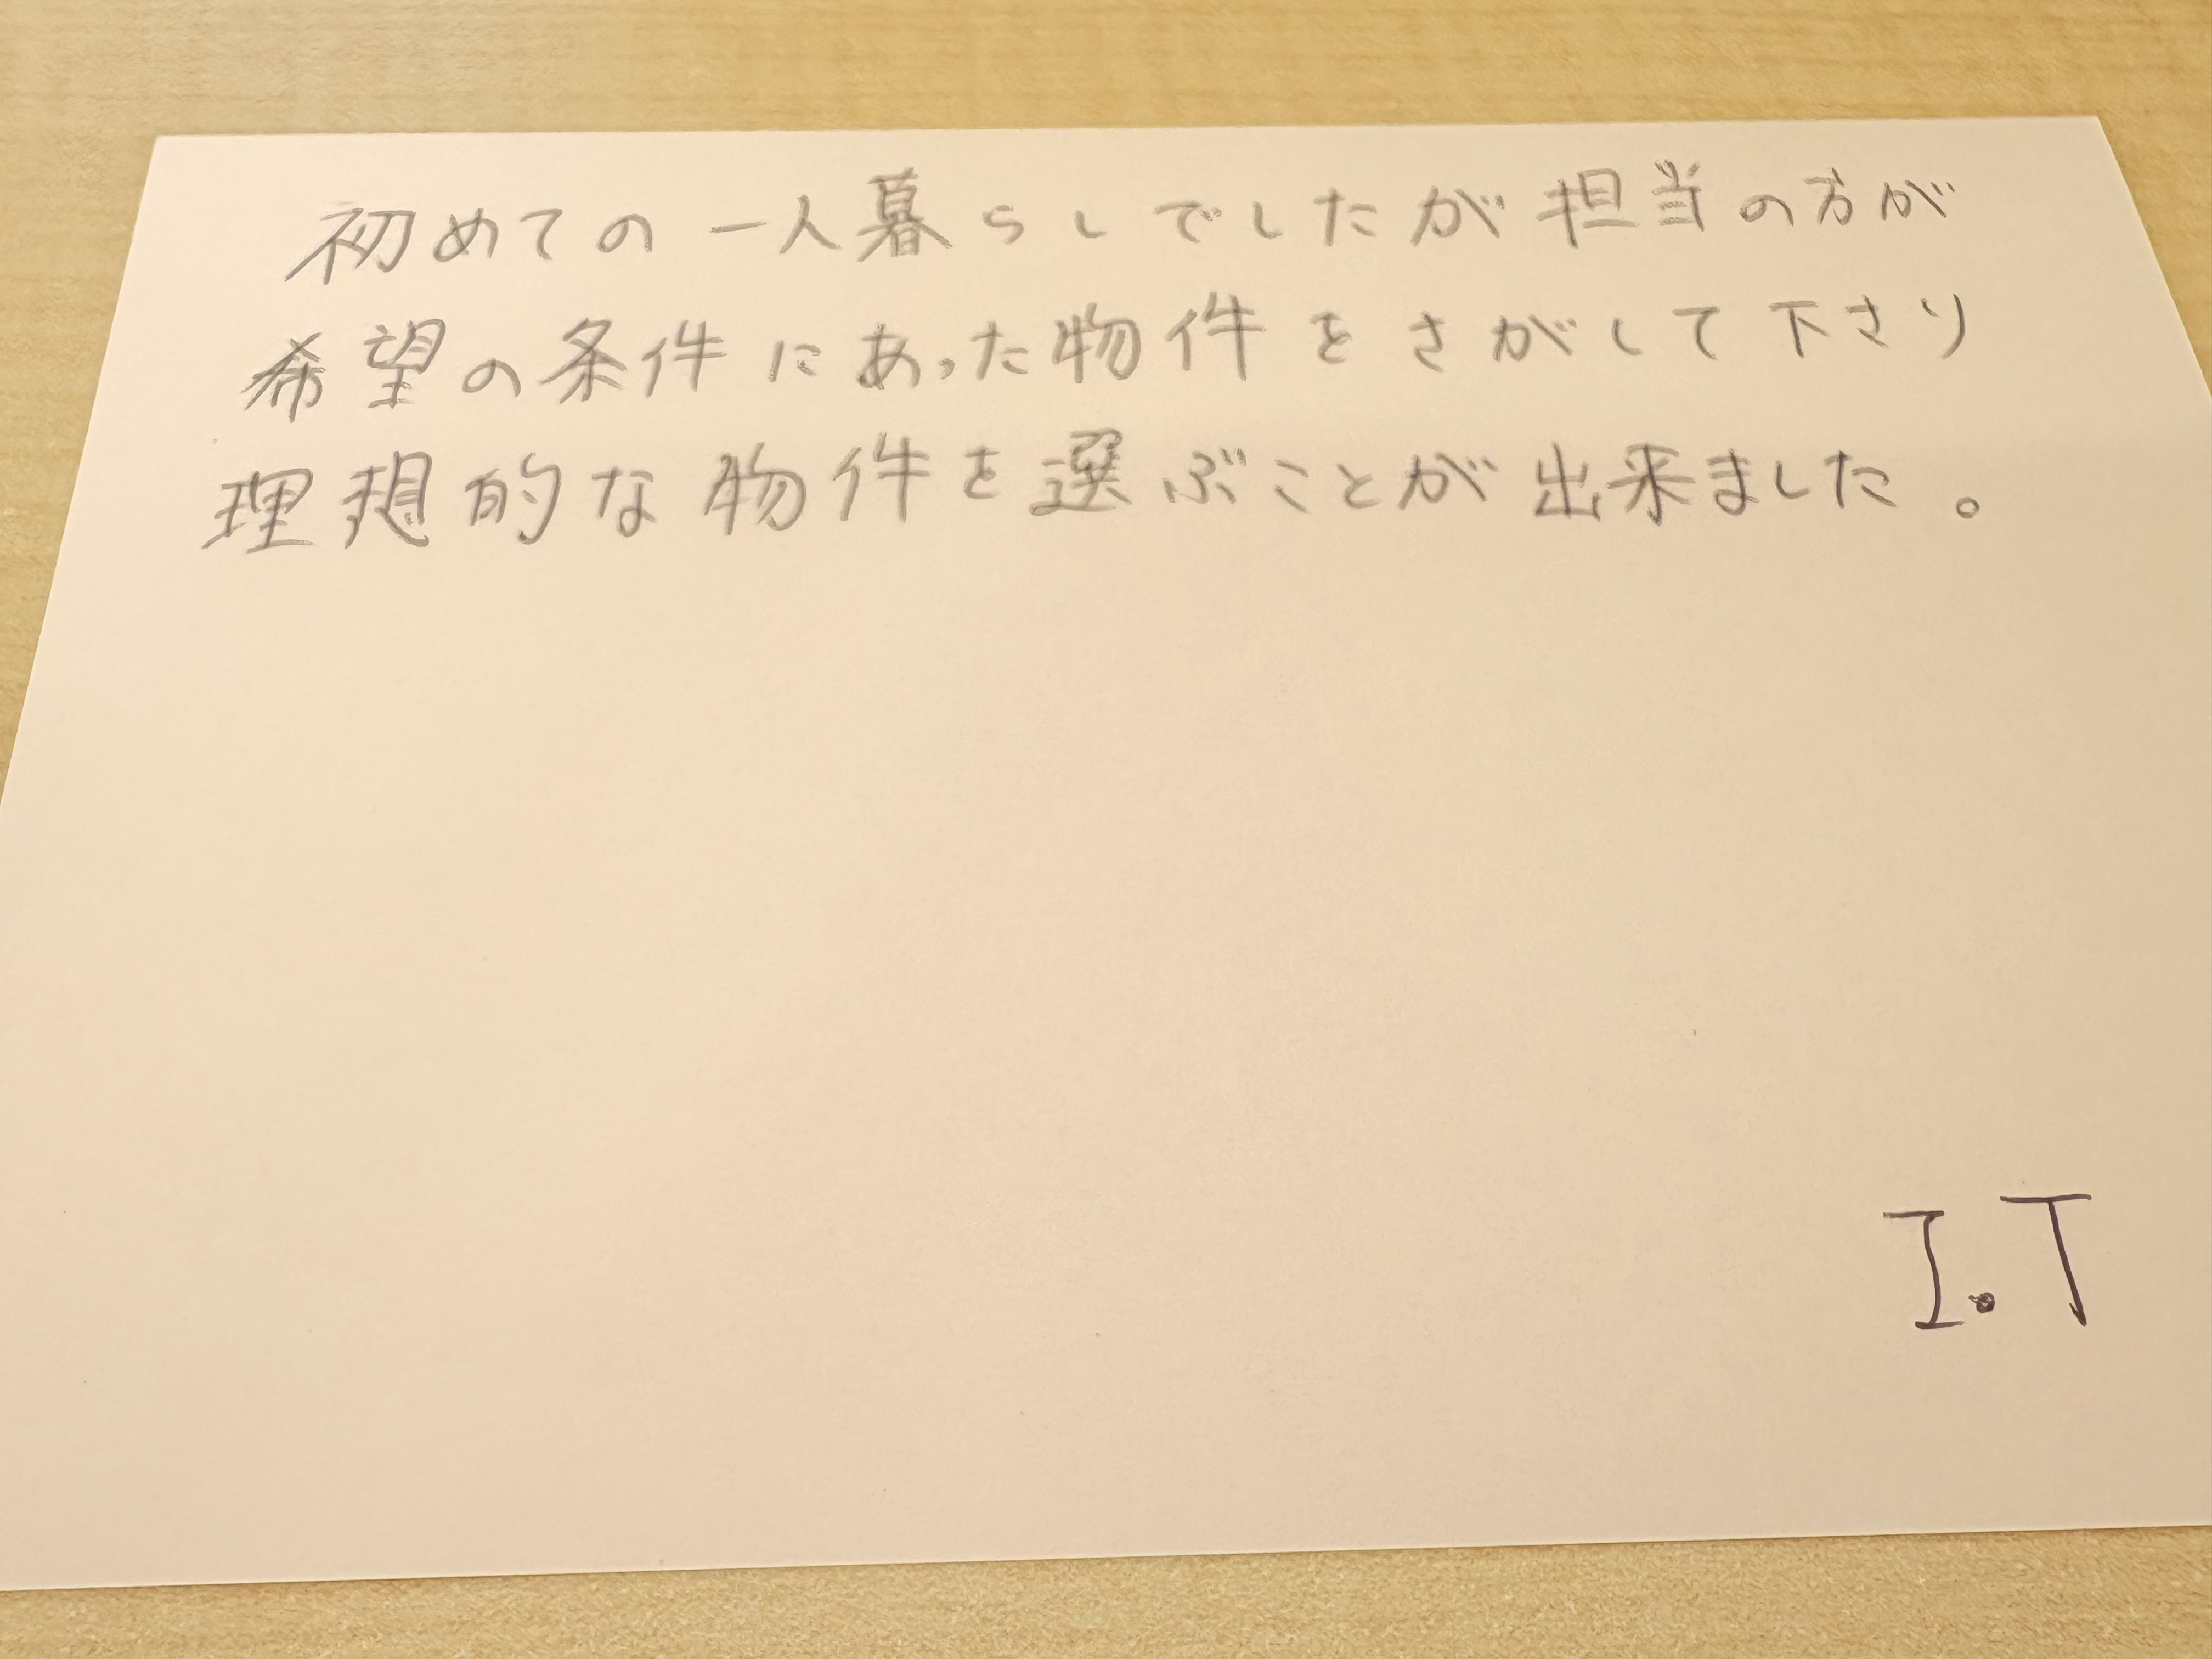 初めての一人暮らしでしたが担当の方が
希望の条件にあった物件をさがして下さり
理想的な物件を選ぶことが出来ました。
I.T